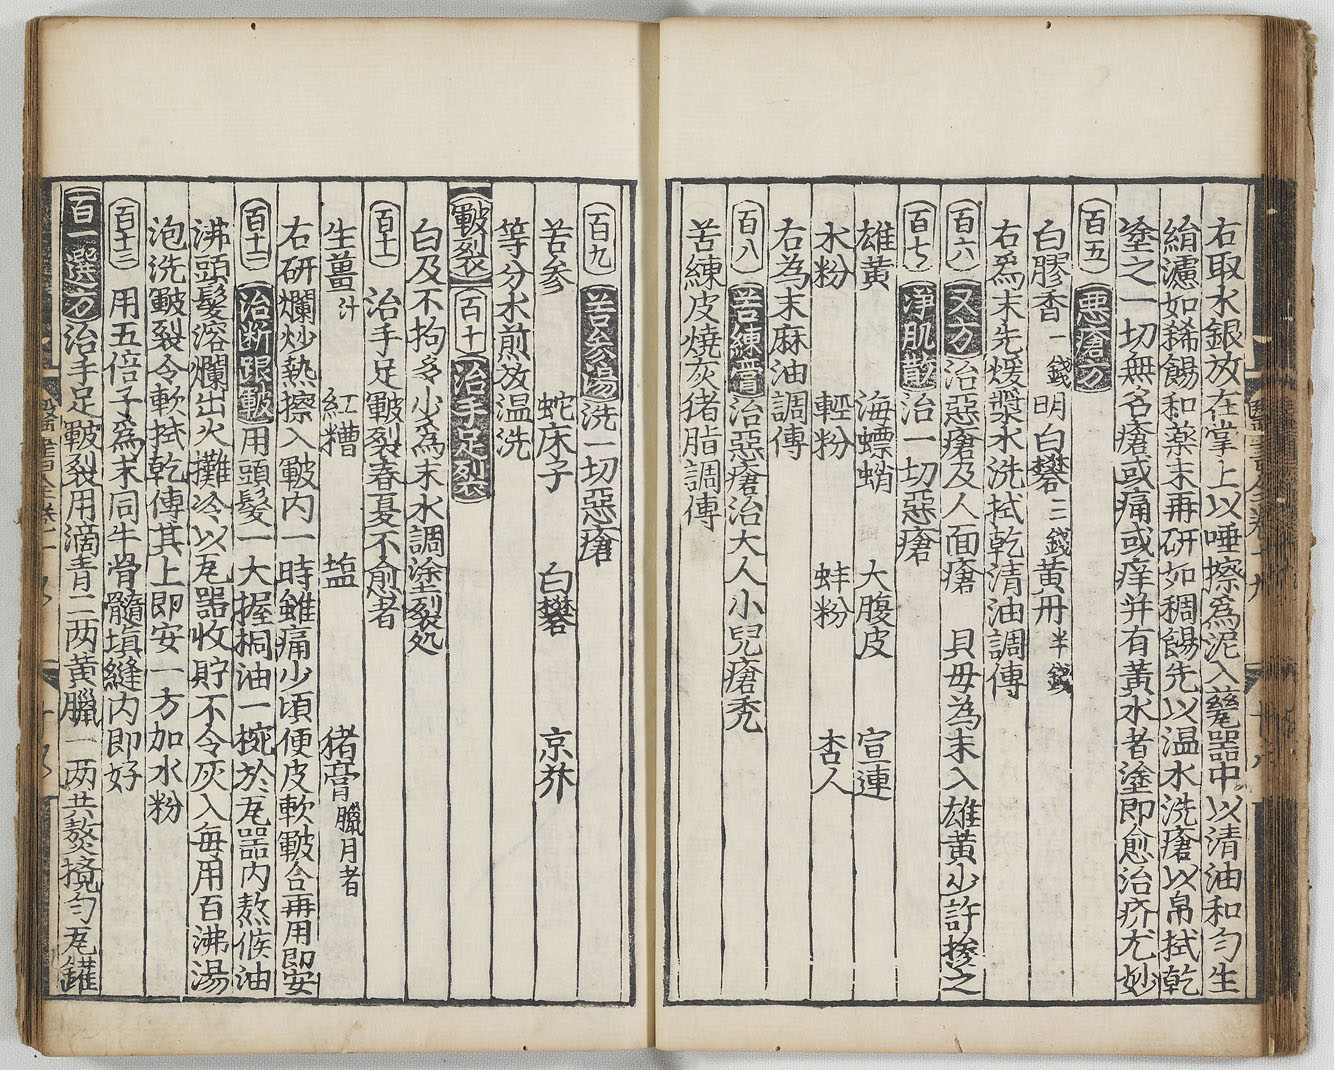 右取水銀放在掌上以唾擦為泥入甆器中以清油和勻生
絹濾如稀餳和藥末再研如稠餳先以温水洗瘡以帛拭乾
塗之一切無名瘡或痛或痒并有黃水者塗即愈治疥尤妙
百五 悪瘡方
白膠香一錢明白礬三錢黃丹半錢
右爲末先煖漿水洗拭乾清油調傅
百六 又方 治惡瘡及人面瘡 貝母為末入雄黃少許摻之
百七 淨肌散 治一切惡瘡
雄黃 海螵蛸 大腹皮 宣連
水粉 輕粉 蚌粉 杏人
右為末麻油調傅
百八 苦練膏 治惡瘡治大人小兒瘡禿
苦練皮燒灰猪脂調傅
百九 苦参湯 洗一切惡瘡
苦参 蛇床子 白礬 京芥
等分水煎放温洗
皸裂 百十 治手足裂
白及不拘多少為末水調塗裂処
百十一 治手足皸裂春夏不愈者
生薑汁 紅糟 塩 猪膏臘月者
右研爛炒熱擦入皸內一時雖痛少頃便皮軟皸合再用即安
百十二 治斷跟皸 用頭髮一大握桐油一椀於瓦器內熬候油
沸頭髮溶爛出火攤冷以瓦器收貯不令灰入每用百沸湯
泡洗皸裂令軟拭乾傅其上即安一方加水粉
百十三 用五倍子爲末同牛骨髓塡縫內即好
百一選方 治手足皸裂用滴青二两黃臘一两共熬攪勻瓦鑵